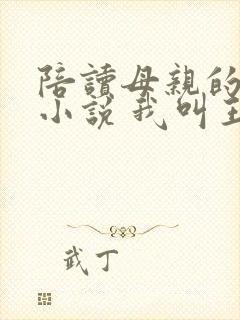 陪讀母親的
小說我叫王
武丁